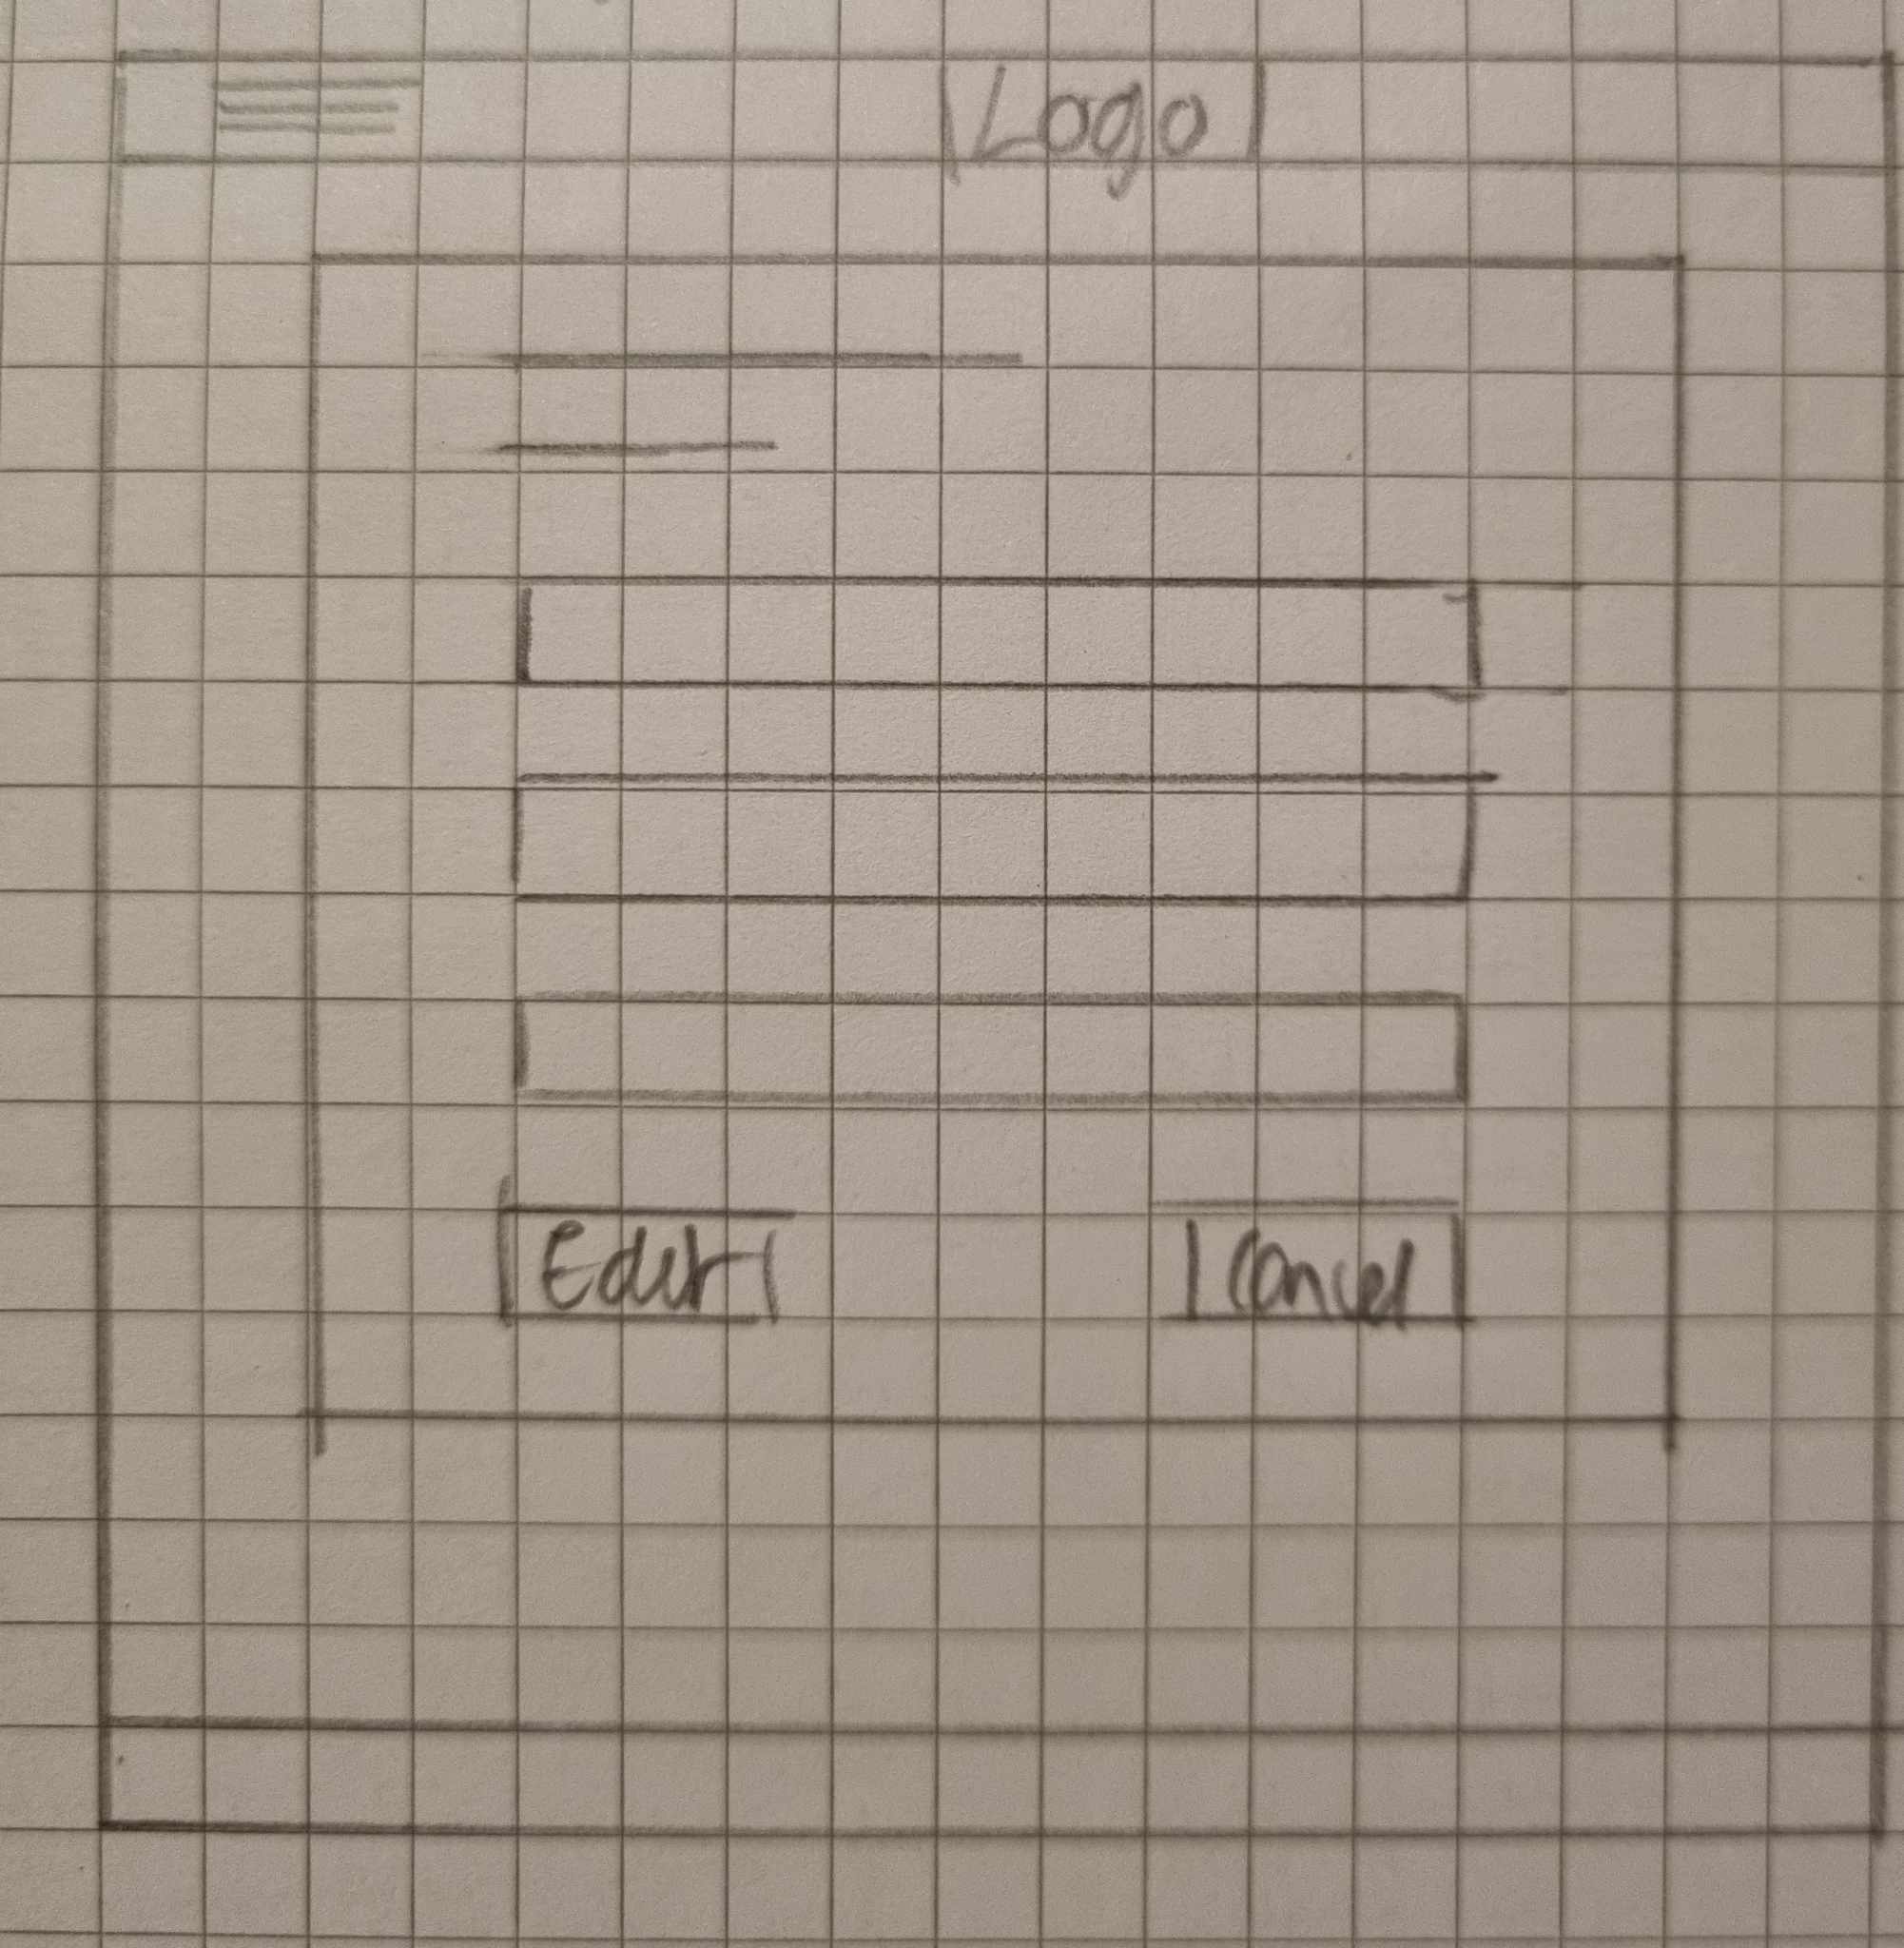 Logo
Edit
Cancel